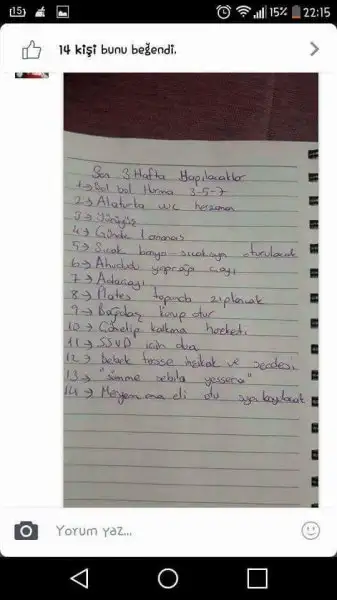 (15) 15% 22:15
14 kişi bunu beğendi.
Son 3 Hafta Yapılacaklar
1→ Bol bol Hurma 3-5-7
2→ Alaturka wc herzaman
3→ Yürüyüş
4→ Günde 1 ananas
5→ Sıcak banyo sıcak suya oturulacak
6→ Ahududu yaprağı çayı
7→ Adaçayı
8→ Plates topunda zıplancak
9→ Bağdaş kurup otur
10→ Çömelip kalkma hareketi
11→ SSVD için dua
12→ bebek hareket ve secdesi
13→ "sümme sebila yessera"
14→ Meryem ana eli otu suya koyulacak
Yorum yaz...